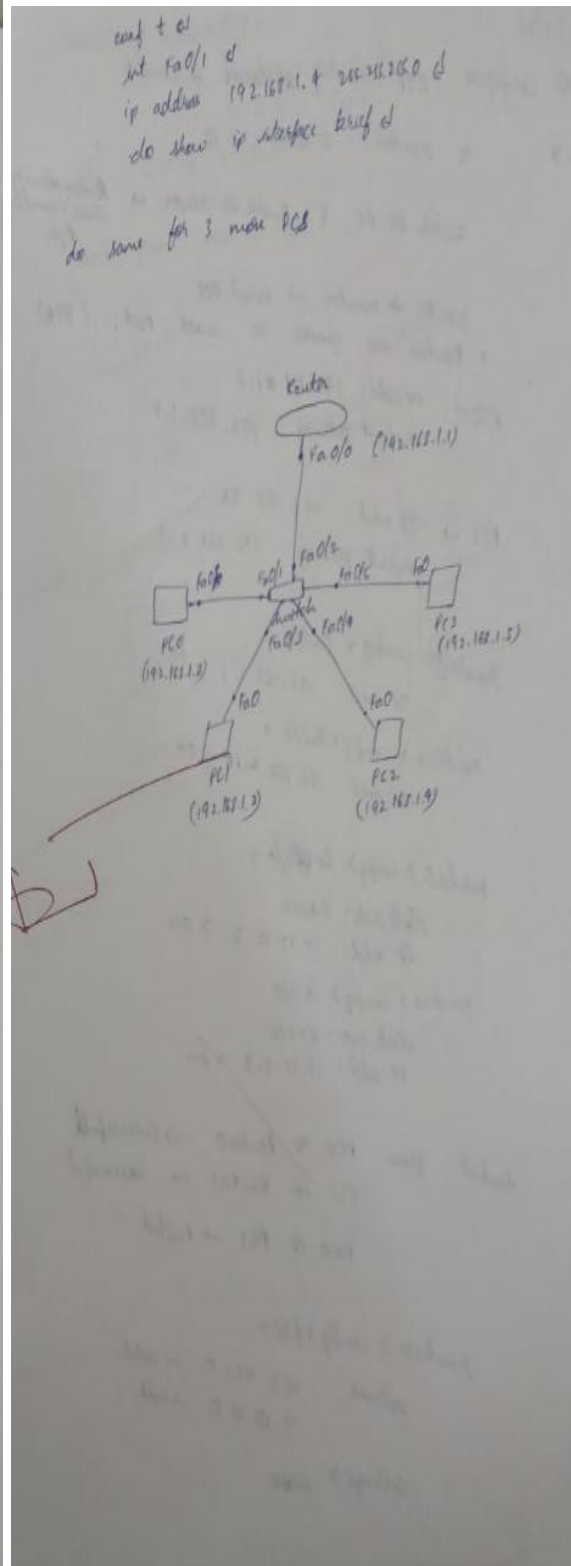 conf t ↵
int Fa0/1 ↵
ip address 192.168.1.4 255.255.255.0 ↵
do show ip interface brief ↵
do same for 3 more PCs
Router
Fa0/0 (192.168.1.1)
Fa0/2
Fa0/1
Fa0
Switch
PC0
(192.168.1.2)
PC3
Fa0/3 Fa0/4
Fa0 Fa0
PC1 PC2
(192.168.1.3) (192.168.1.4)